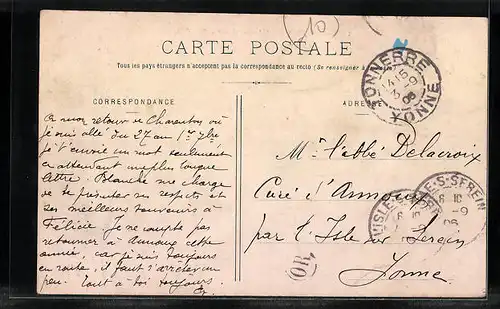 (10)
CARTE POSTALE
Tous les pays étrangers n'acceptent pas la correspondance au recto (Se renseigner à
CORRESPONDANCE
ADRESSE
TONNERRE
YONNE
A mon retour de Charenton où
je suis allé du 27 au 1er 7bre
je t'envoie un mot seulement
en attendant une plus longue
lettre. Blanche me charge
de se présenter ses respects et
ses meilleurs souvenirs à
Félicie. Je ne compte pas
retourner à Annoux cette
année, car je suis toujours
en route, il faut s'arrêter un
peu. Tout à toi toujours.
Mr l'abbé Delacroix
Curé d'Annoux
par l'Isle sur Serein
Yonne
L'ISLE-S-SEREIN